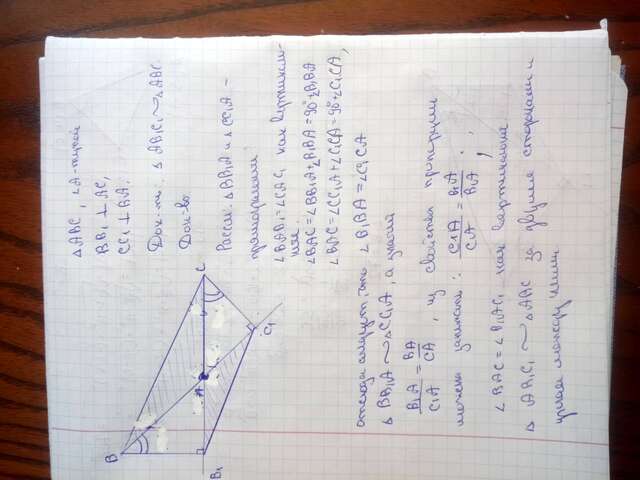 △ABC, ∠A-тупой
BB₁ ⊥ AC,
CC₁ ⊥ BA.
Док-ть: △AB₁C₁ ~ △ABC
Док-во
Рассм. △BB₁A и △CC₁A -
прямоугольные
∠BAB₁ = ∠CAC₁ как вертикаль-
ные.
∠BAC = ∠BB₁A + ∠B₁BA = 90° + ∠B₁BA
∠BAC = ∠CC₁A + ∠C₁CA = 90° + ∠C₁CA,
отсюда следует, что ∠B₁BA = ∠C₁CA
△BB₁A ~ △CC₁A, а значит
B₁A/C₁A = BA/CA, из свойства пропорции
можем записать: C₁A/CA = B₁A/BA;
∠BAC = ∠B₁AC₁ как вертикальные,
△AB₁C₁ ~ △ABC за двумя сторонами и
углом между ними.
B
B₁
A
C
C₁